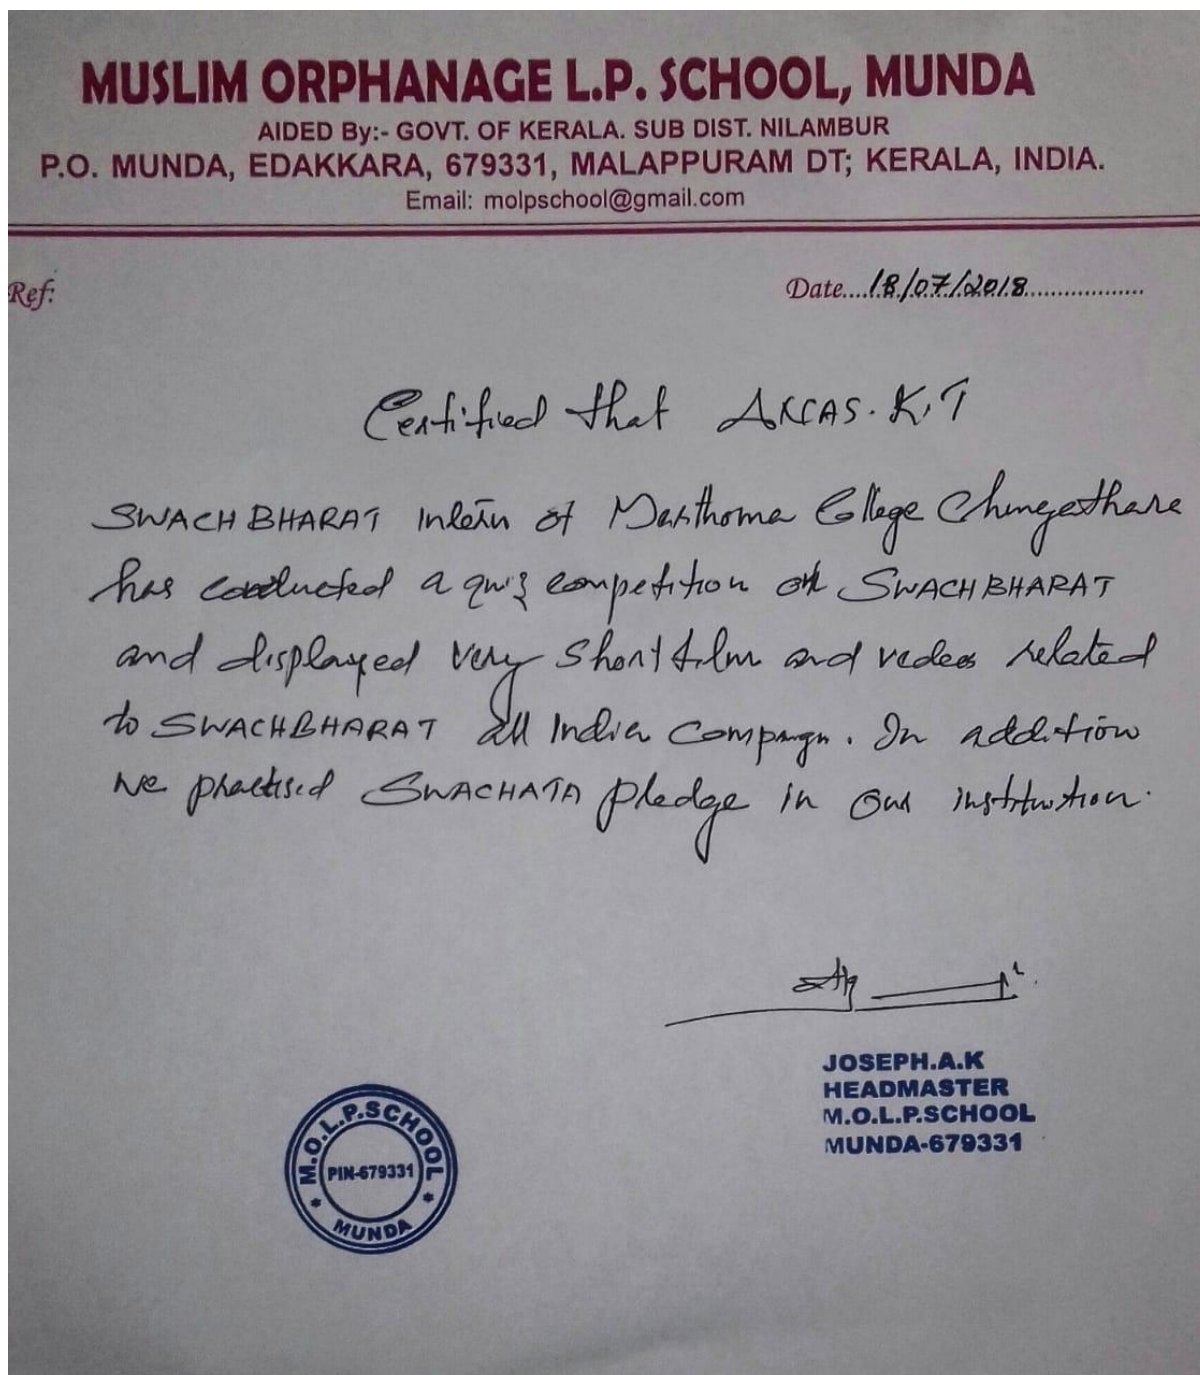 MUSLIM ORPHANAGE L.P. SCHOOL, MUNDA
AIDED By:- GOVT. OF KERALA. SUB DIST. NILAMBUR
P.O. MUNDA, EDAKKARA, 679331, MALAPPURAM DT; KERALA, INDIA.
Email: molpschool@gmail.com
Ref:
Date....18/07/2018..................
Certified that K.T
SWACH BHARAT Intern of Marthoma College Chungathara
has conducted a quiz competition on SWACH BHARAT
and displayed very Short film and vedeos related
to SWACHBHARAT all India Compaign. In addition
we practised SWACHATA pledge in our institution.
JOSEPH.A.K
HEADMASTER
M.O.L.P.SCHOOL
MUNDA-679331
M.O.L.P.SCHOOL
PIN-679331
* MUNDA *